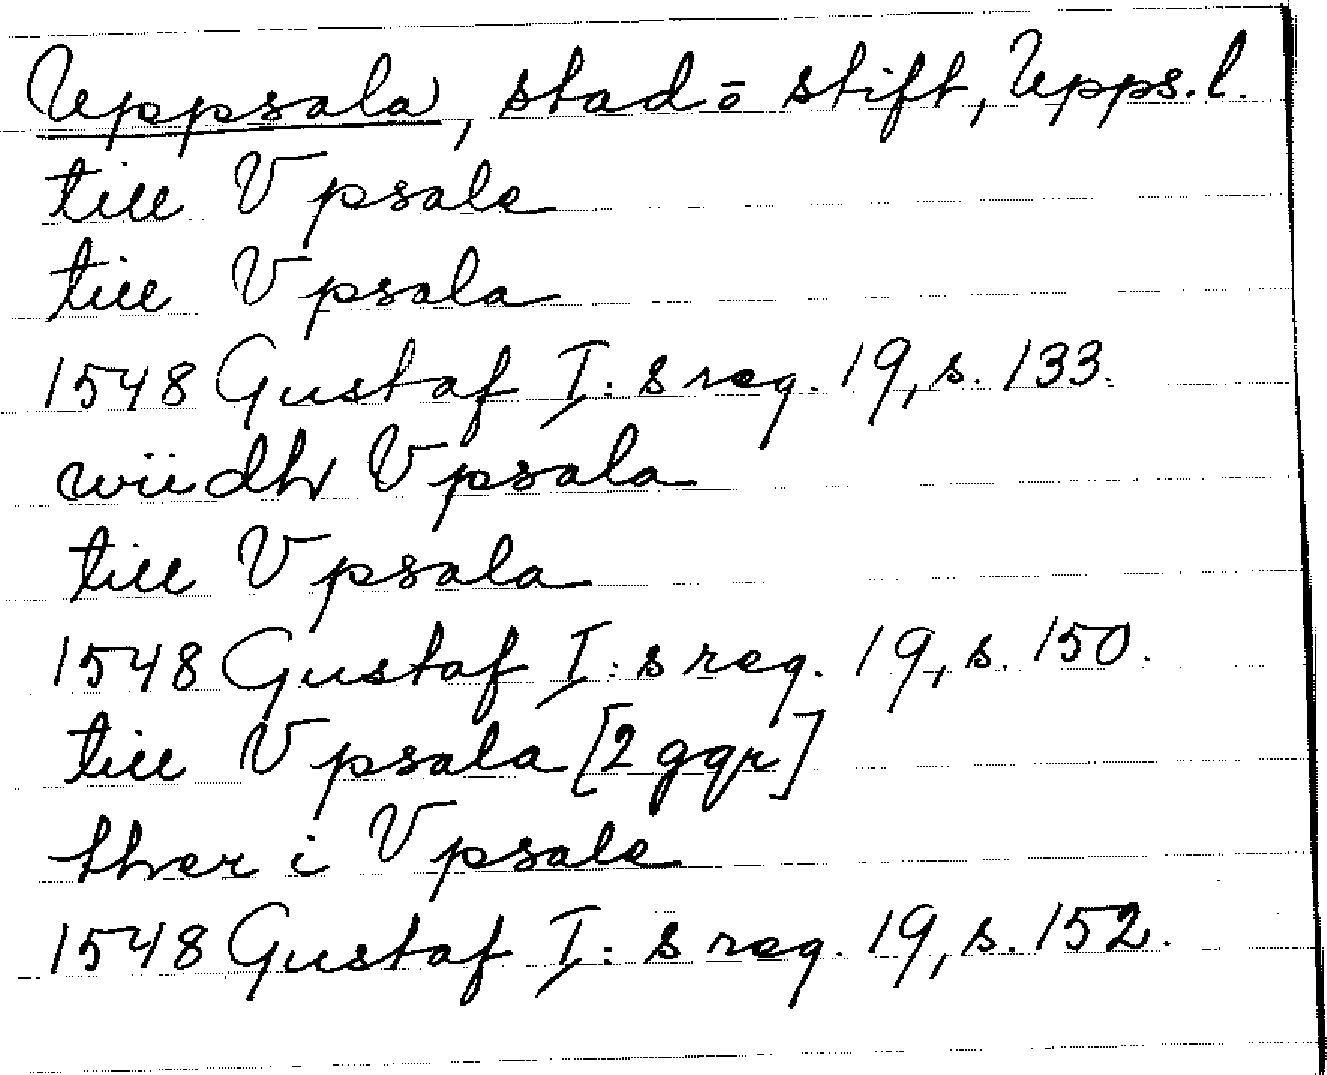 Uppsala, stad o stift, Upps. l.
till Vpsale
till Vpsala
1548 Gustaf I:s reg. 19, s. 133.
wiidh Vpsala
till Vpsala
1548 Gustaf I:s reg. 19, s. 150.
till Vpsala [2 ggr]
ther i Vpsale
1548 Gustaf I:s reg. 19, s. 152.